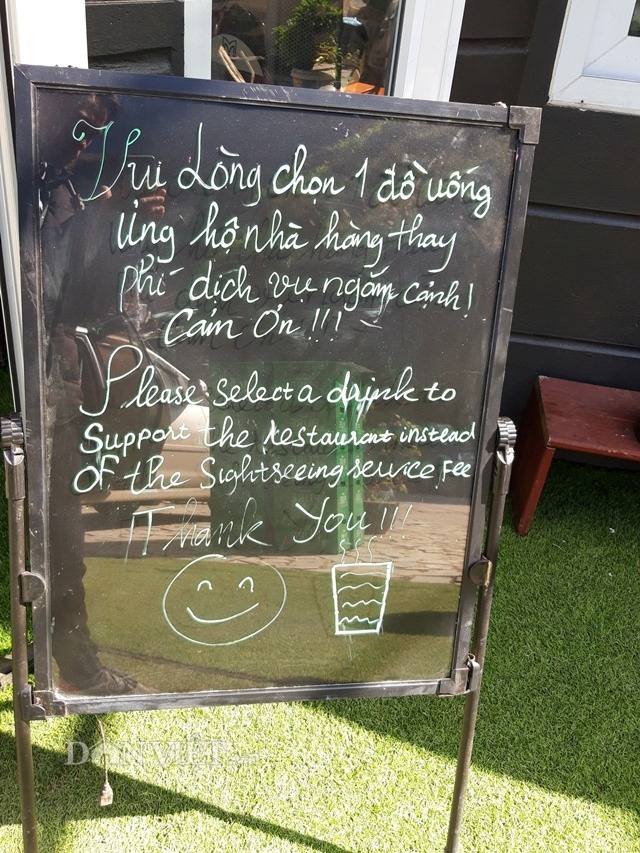 Vui Lòng chọn 1 đồ uống
Ủng hộ nhà hàng thay
phí dịch vụ ngắm cảnh!
Cám Ơn !!!
Please Select a drink to
Support the Restaurant instead
OF the Sightseeing service Fee
Thank You !!!
DÂN VIỆT